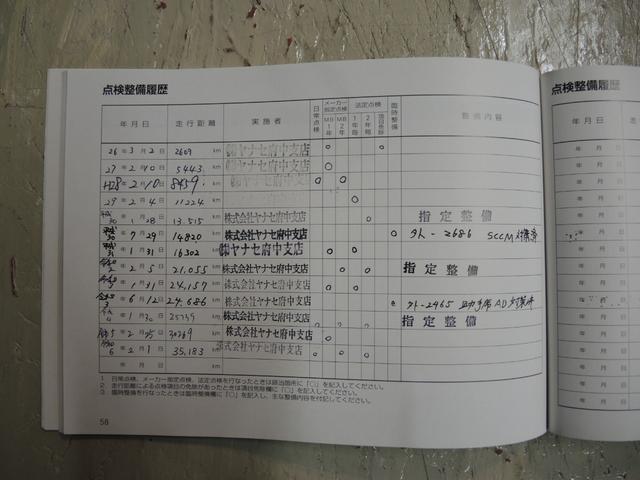 点検整備履歴
年月日 走行距離 実施者 日常点検 メーカー指定点検 法定点検 臨時整備 整備内容
MB1年 MB2年 1年毎 2年毎
26年3月2日 2609 km ㈱ヤナセ府中支店 ○ ○
27年2月10日 5443 km ㈱ヤナセ府中支店 ○
H28年2月10日 8459 km ㈱ヤナセ府中支店 ○ ○
29年2月4日 11224 km ㈱ヤナセ府中支店 ○
平成30年1月28日 13,515 km 株式会社ヤナセ府中支店 ○ 指定整備
平成30年7月29日 14820 km 株式会社ヤナセ府中支店 ○ タト-2686 SCCM
平成31年1月31日 16302 km ㈱ヤナセ府中支店 ○ ○
令和2年2月5日 21,055 km 株式会社ヤナセ府中支店 ○ ○ 指定整備
令和3年1月31日 24,157 km 株式会社ヤナセ府中支店 ○ ○
令和3年6月12日 24,686 km 株式会社ヤナセ府中支店 タト-2465 助手席AB
年1月30日 km 株式会社ヤナセ府中支店 指定整備
令和5年2月25日 30269 km 株式会社ヤナセ府中支店 ○
令和6年2月1日 35,183 km 株式会社ヤナセ府中支店 ○ ○ ○
年月日 km ○
1 日常点検、メーカー指定点検、法定点検を行なったときは該当箇所に「○」を記入してください。
2 走行距離による点検項目の免除があったときは項目免除欄に「○」を記入してください。
3 臨時整備を行なったときは臨時整備欄に「○」を記入し、主な整備内容を付記してください。
58
点検整備履歴
年月日 走行
年月日
年月日
年月日
年月日
年月日
年月日
年月日
年月日
年月日
年月日
年月日
年月日
年月日